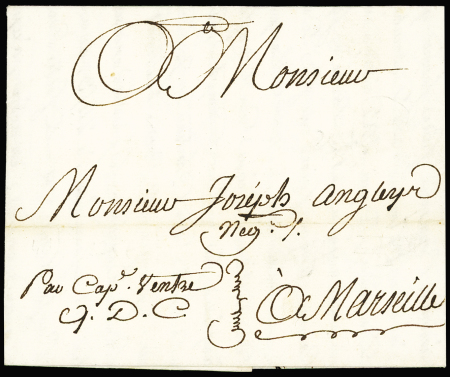 A Monsieur
Monsieur Joseph Angleys
Neg.t
Par Cap.e Ventre
q. D. C.
A Marseille